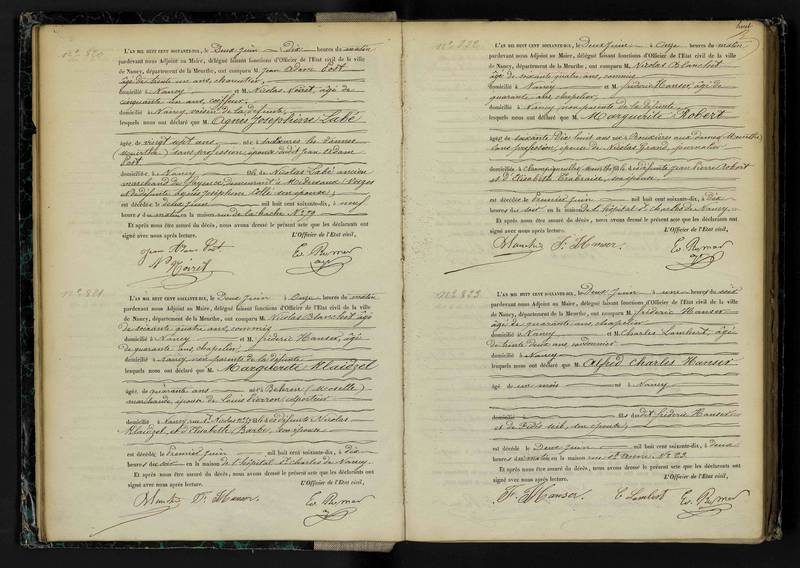 N° 820
L'AN MIL HUIT CENT SOIXANTE-DIX, le Deux Juin à Dix heures du matin
pardevant nous Adjoint au Maire, délégué faisant fonctions d'Officier de l'Etat civil de la ville
de Nancy, département de la Meurthe, ont comparu M. Jean Adam Post
âgé de trente un ans,
domicilié à Nancy et M. Nicolas Noiret, âgé de
cinquante un ans, coiffeur,
domicilié à Nancy, voisin de la défunte,
lesquels nous ont déclaré que M. Agnès Joséphine Labé
âgée de vingt sept ans née à
(Meurthe) sans profession, épouse dudit Jean Adam
Post
domiciliée à Nancy fille de Nicolas Labé ancien
marchand de fayence demeurant à (Vosges
et de défunte Agnès Joséphine son épouse;
est décédée le deux Juin mil huit cent soixante-dix, à neuf
heures du matin en la maison rue de la hache N° 79
Et après nous être assuré du décès, nous avons dressé le présent acte que les déclarants ont
signé avec nous après lecture. L'Officier de l'Etat civil,
Jean Adam Post
N. Noiret
N° 821
L'AN MIL HUIT CENT SOIXANTE-DIX, le Deux Juin à Onze heures du matin
pardevant nous Adjoint au Maire, délégué faisant fonctions d'Officier de l'Etat civil de la ville
de Nancy, département de la Meurthe, ont comparu M. Nicolas Blanchot âgé
de soixante quatre ans, commis
domicilié à Nancy et M. frédéric Hanser, âgé
de quarante ans, chapelier,
domicilié à Nancy non parents de la défunte
lesquels nous ont déclaré que M. Marguerite Klaidzel
âgée de quarante ans née à Behren (Moselle)
marchande, épouse de Louis Pierron colporteur
domiciliée à Nancy, rue St Nicolas fille de défunts Nicolas
Klaidzel, et d'Elisabeth Barbe, son épouse
est décédée le premier Juin mil huit cent soixante-dix, à dix
heures du soir en la maison de l'hôpital St Charles de Nancy.
Et après nous être assuré du décès, nous avons dressé le présent acte que les déclarants ont
signé avec nous après lecture. L'Officier de l'Etat civil,
F. Hanser.
N° 822
L'AN MIL HUIT CENT SOIXANTE-DIX, le Deux Juin à Onze heures du matin
pardevant nous Adjoint au Maire, délégué faisant fonctions d'Officier de l'Etat civil de la ville
de Nancy, département de la Meurthe, ont comparu M. Nicolas Blanchot
âgé de soixante quatre ans, commis
domicilié à Nancy et M. frédéric Hanser, âgé de
quarante ans, chapelier
domicilié à Nancy, non parents de la défunte
lesquels nous ont déclaré que M. Marguerite Robert
âgée de soixante Dix huit ans née à (Meurthe)
sans profession, épouse de Nicolas Grand, journalier
domiciliée à Champigneulles, Meurthe fille de défunts Jean Pierre Robert
et d'Elisabeth son épouse
est décédée le premier Juin mil huit cent soixante-dix, à dix
heures du soir en la maison de l'hôpital St Charles de Nancy.
Et après nous être assuré du décès, nous avons dressé le présent acte que les déclarants ont
signé avec nous après lecture. L'Officier de l'Etat civil,
F. Hanser.
N° 823
L'AN MIL HUIT CENT SOIXANTE-DIX, le Deux Juin à une heure du soir
pardevant nous Adjoint au Maire, délégué faisant fonctions d'Officier de l'Etat civil de la ville
de Nancy, département de la Meurthe, ont comparu M. frédéric Hanser
âgé de quarante ans, chapelier
domicilié à Nancy et M. Charles Lambert, âgé
de trente deux ans, cordonnier
domicilié à Nancy
lesquels nous ont déclaré que M. Alfred Charles Hanser
âgé de un mois né à Nancy
domicilié fils dudit frédéric Hanser
et de son épouse;
est décédé le Deux Juin mil huit cent soixante-dix, à deux
heures du matin en la maison rue N° 22
Et après nous être assuré du décès, nous avons dressé le présent acte que les déclarants ont
signé avec nous après lecture. L'Officier de l'Etat civil,
F. Hanser C. Lambert